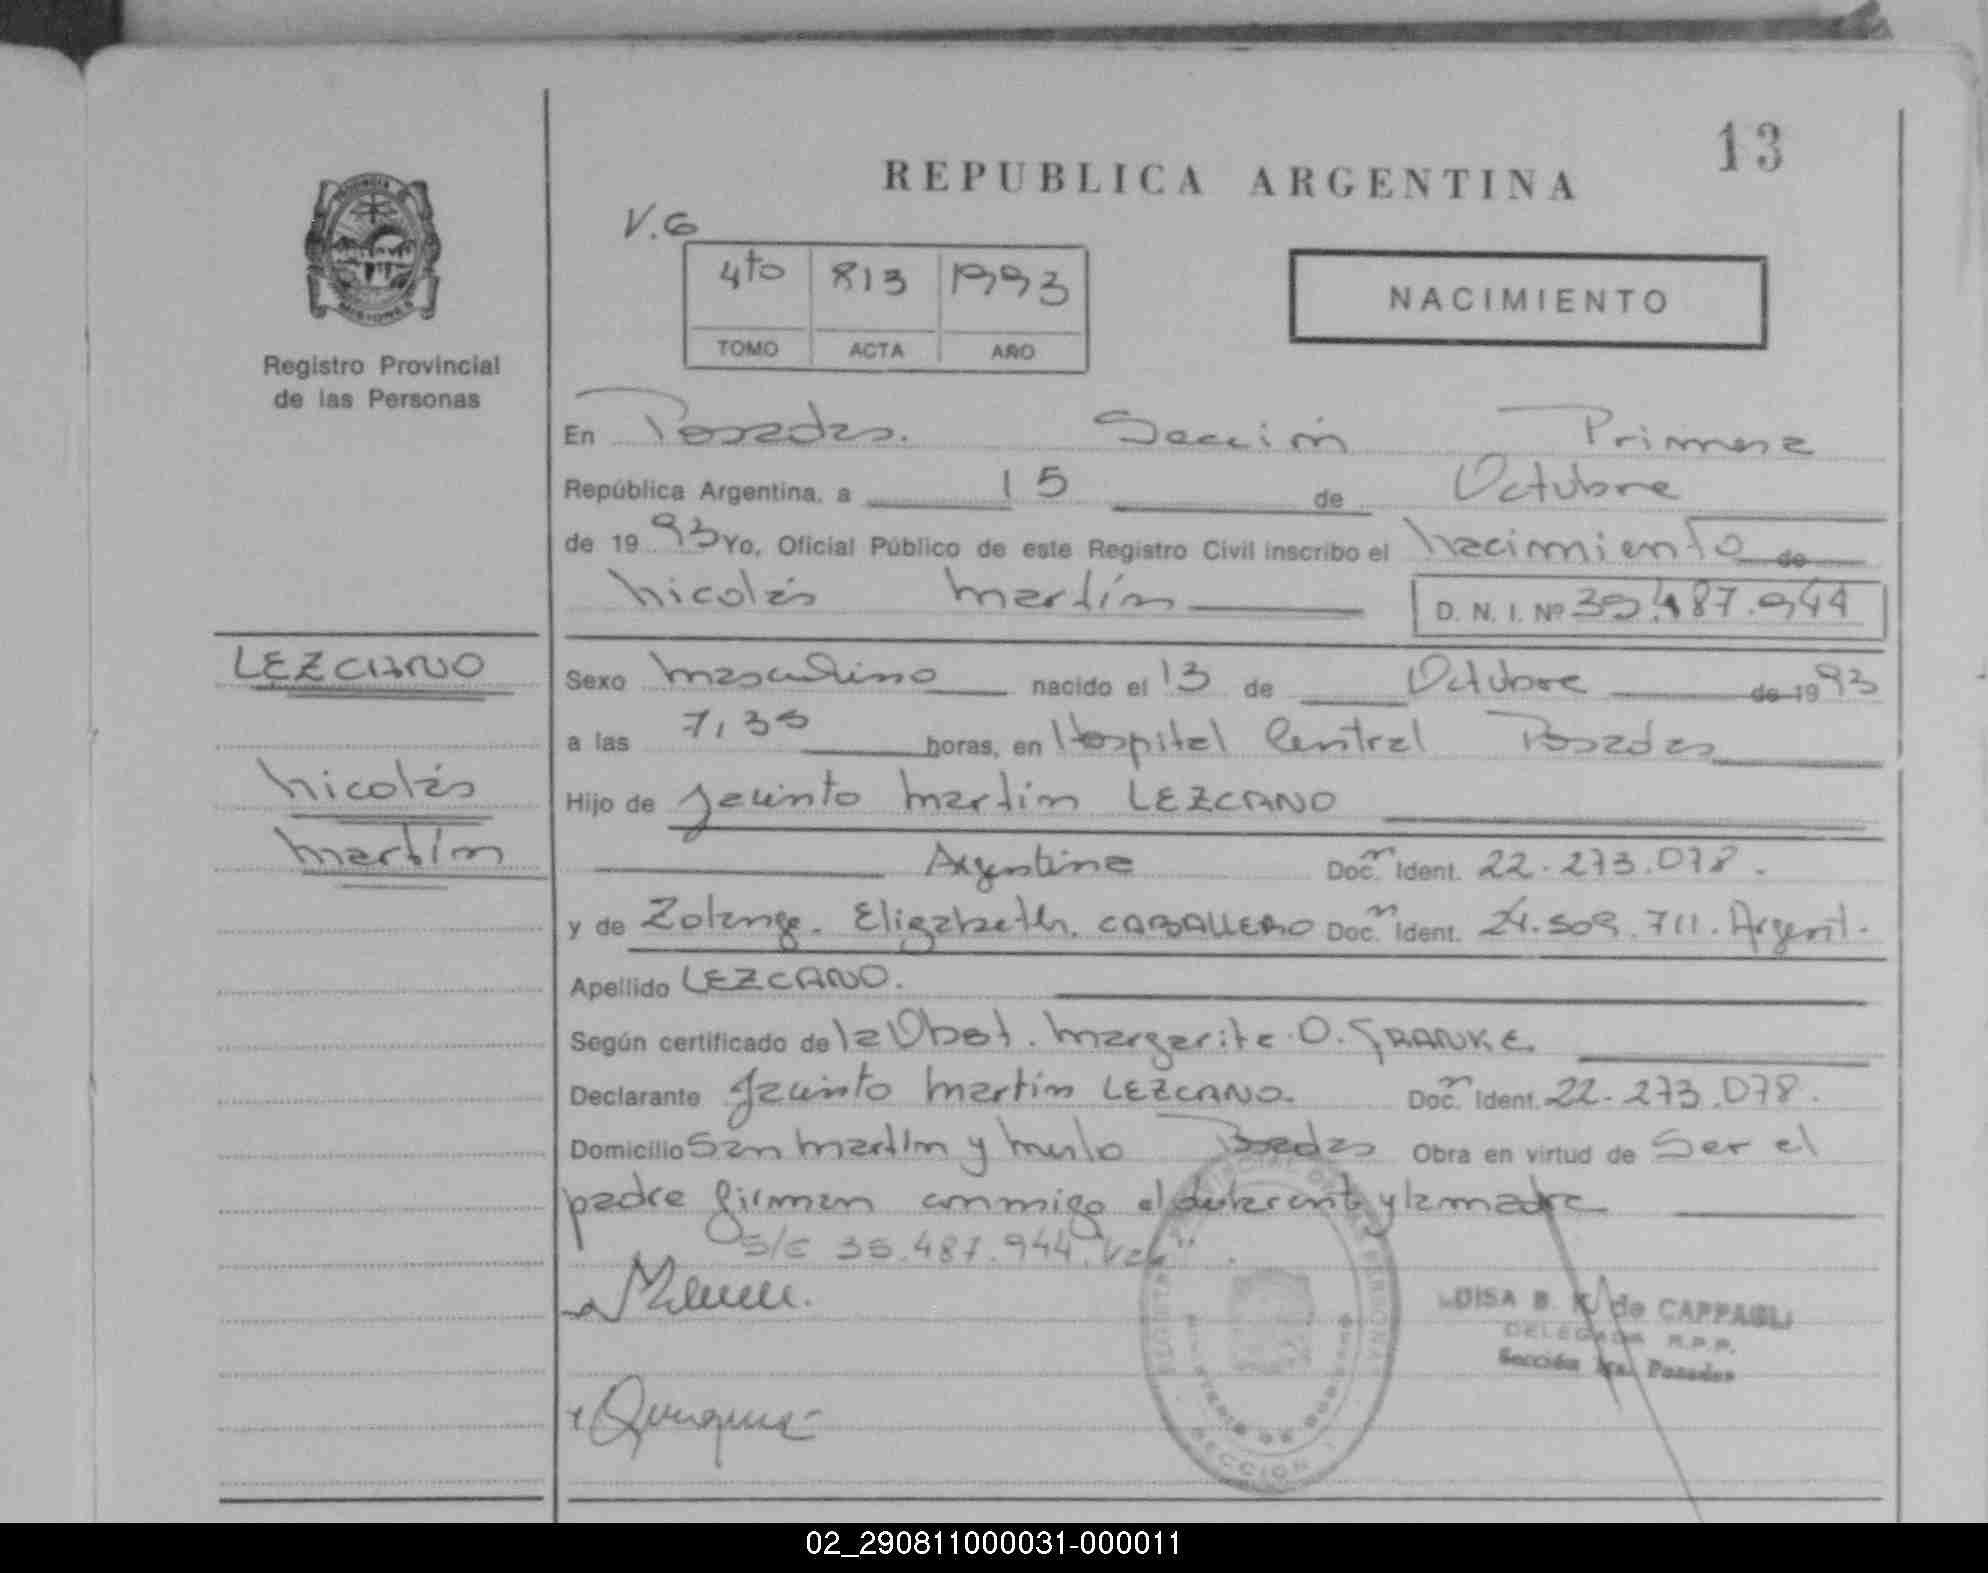 13
REPUBLICA ARGENTINA
V.G
4to 813 1993
TOMO ACTA AÑO
NACIMIENTO
Registro Provincial
de las Personas
En Posadas. Sección Primera
República Argentina, a 15 de Octubre
de 1993 Yo, Oficial Público de este Registro Civil inscribo el nacimiento de
Nicolás Martín D. N. I. Nº 35.487.944
LEZCANO
Nicolás
Martín
Sexo masculino nacido el 13 de Octubre de 1993
a las 7,35 horas, en Hospital Central Posadas
Hijo de Jacinto Martin LEZCANO
Argentina Doc. Ident. 22.273.078.
y de Zolange. Elizabeth. CABALLERO Doc. Ident. 24.509.711. Argent.
Apellido LEZCANO.
Según certificado de la Obst. Margarita O. FRANKE
Declarante Jacinto Martin LEZCANO. Doc. Ident. 22.273.078.
Domicilio San Martín y Merlo Posadas Obra en virtud de Ser el
padre firman conmigo el declarante y la madre
S/E 35.487.944. Vale".
SECCION 1
DELEGADA R.P.P.
Sección 1ra. Posadas
02_290811000031-000011